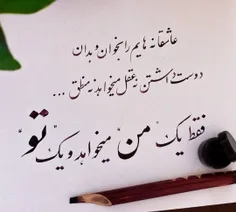 عاشقانه هایم را بخوان و بدان
دوست داشتن نه عقل میخواهد نه منطق ...
فقط یک "من" میخواهد و یک "تو"